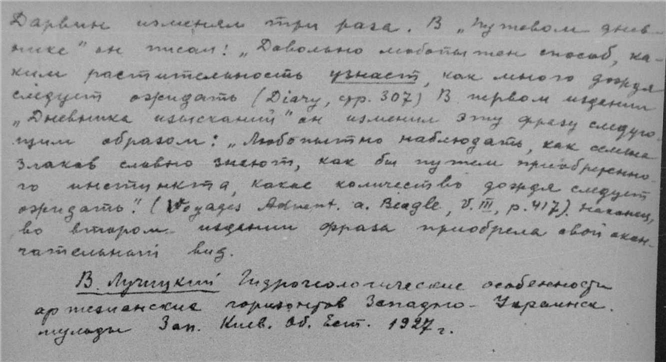 Дарвин изменял три раза. В „Путевом днев-
нике" он писал: „Довольно любопытен способ, ка-
ким растительность узнает, как много дождя
следует ожидать (Diary, стр. 307) В первом издании
„Дневника изысканий" он изменил эту фразу следую-
щим образом: „Любопытно наблюдать, как семена
злаков словно знают, как бы путем приобретенно-
го инстинкта, какое количество дождя следует
ожидать." (Voyages Advent. a. Beagle, V. III, p. 417). Наконец,
во втором издании фраза приобрела свой окон-
чательный вид.
В. Лучицкий Гидрогеологические особенности
артезианских горизонтов Западно-Украинск.
мульды Зап. Киев. Об. Ест. 1927 г.